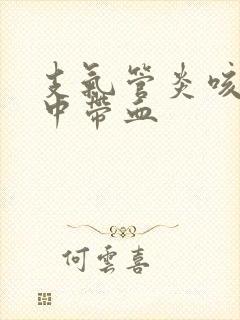 支氣管炎咳
中帶血
何雲喜